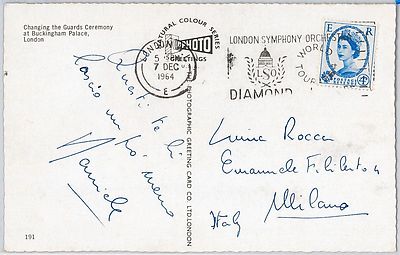 Changing the Guards Ceremony
at Buckingham Palace,
London
NATURAL COLOUR SERIES
PHOTO
GREETINGS
THE PHOTOGRAPHIC GREETING CARD CO. LTD. LONDON
LONDON
7 DEC
1964
E
LONDON SYMPHONY ORCHESTRA
WORLD
TOUR
LSO
DIAMOND
E R
4D
Luisa Rocca
Emanuele Filiberto
Milano
Italy
un po' meno
191